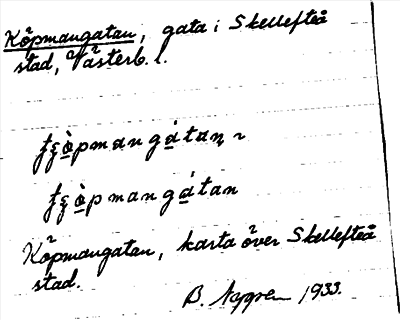 Köpmangatan, gata i Skellefteå
stad, Västerb. l.
man gátan
man gátan
Köpmangatan, karta över Skellefteå
stad.
B. 1933.